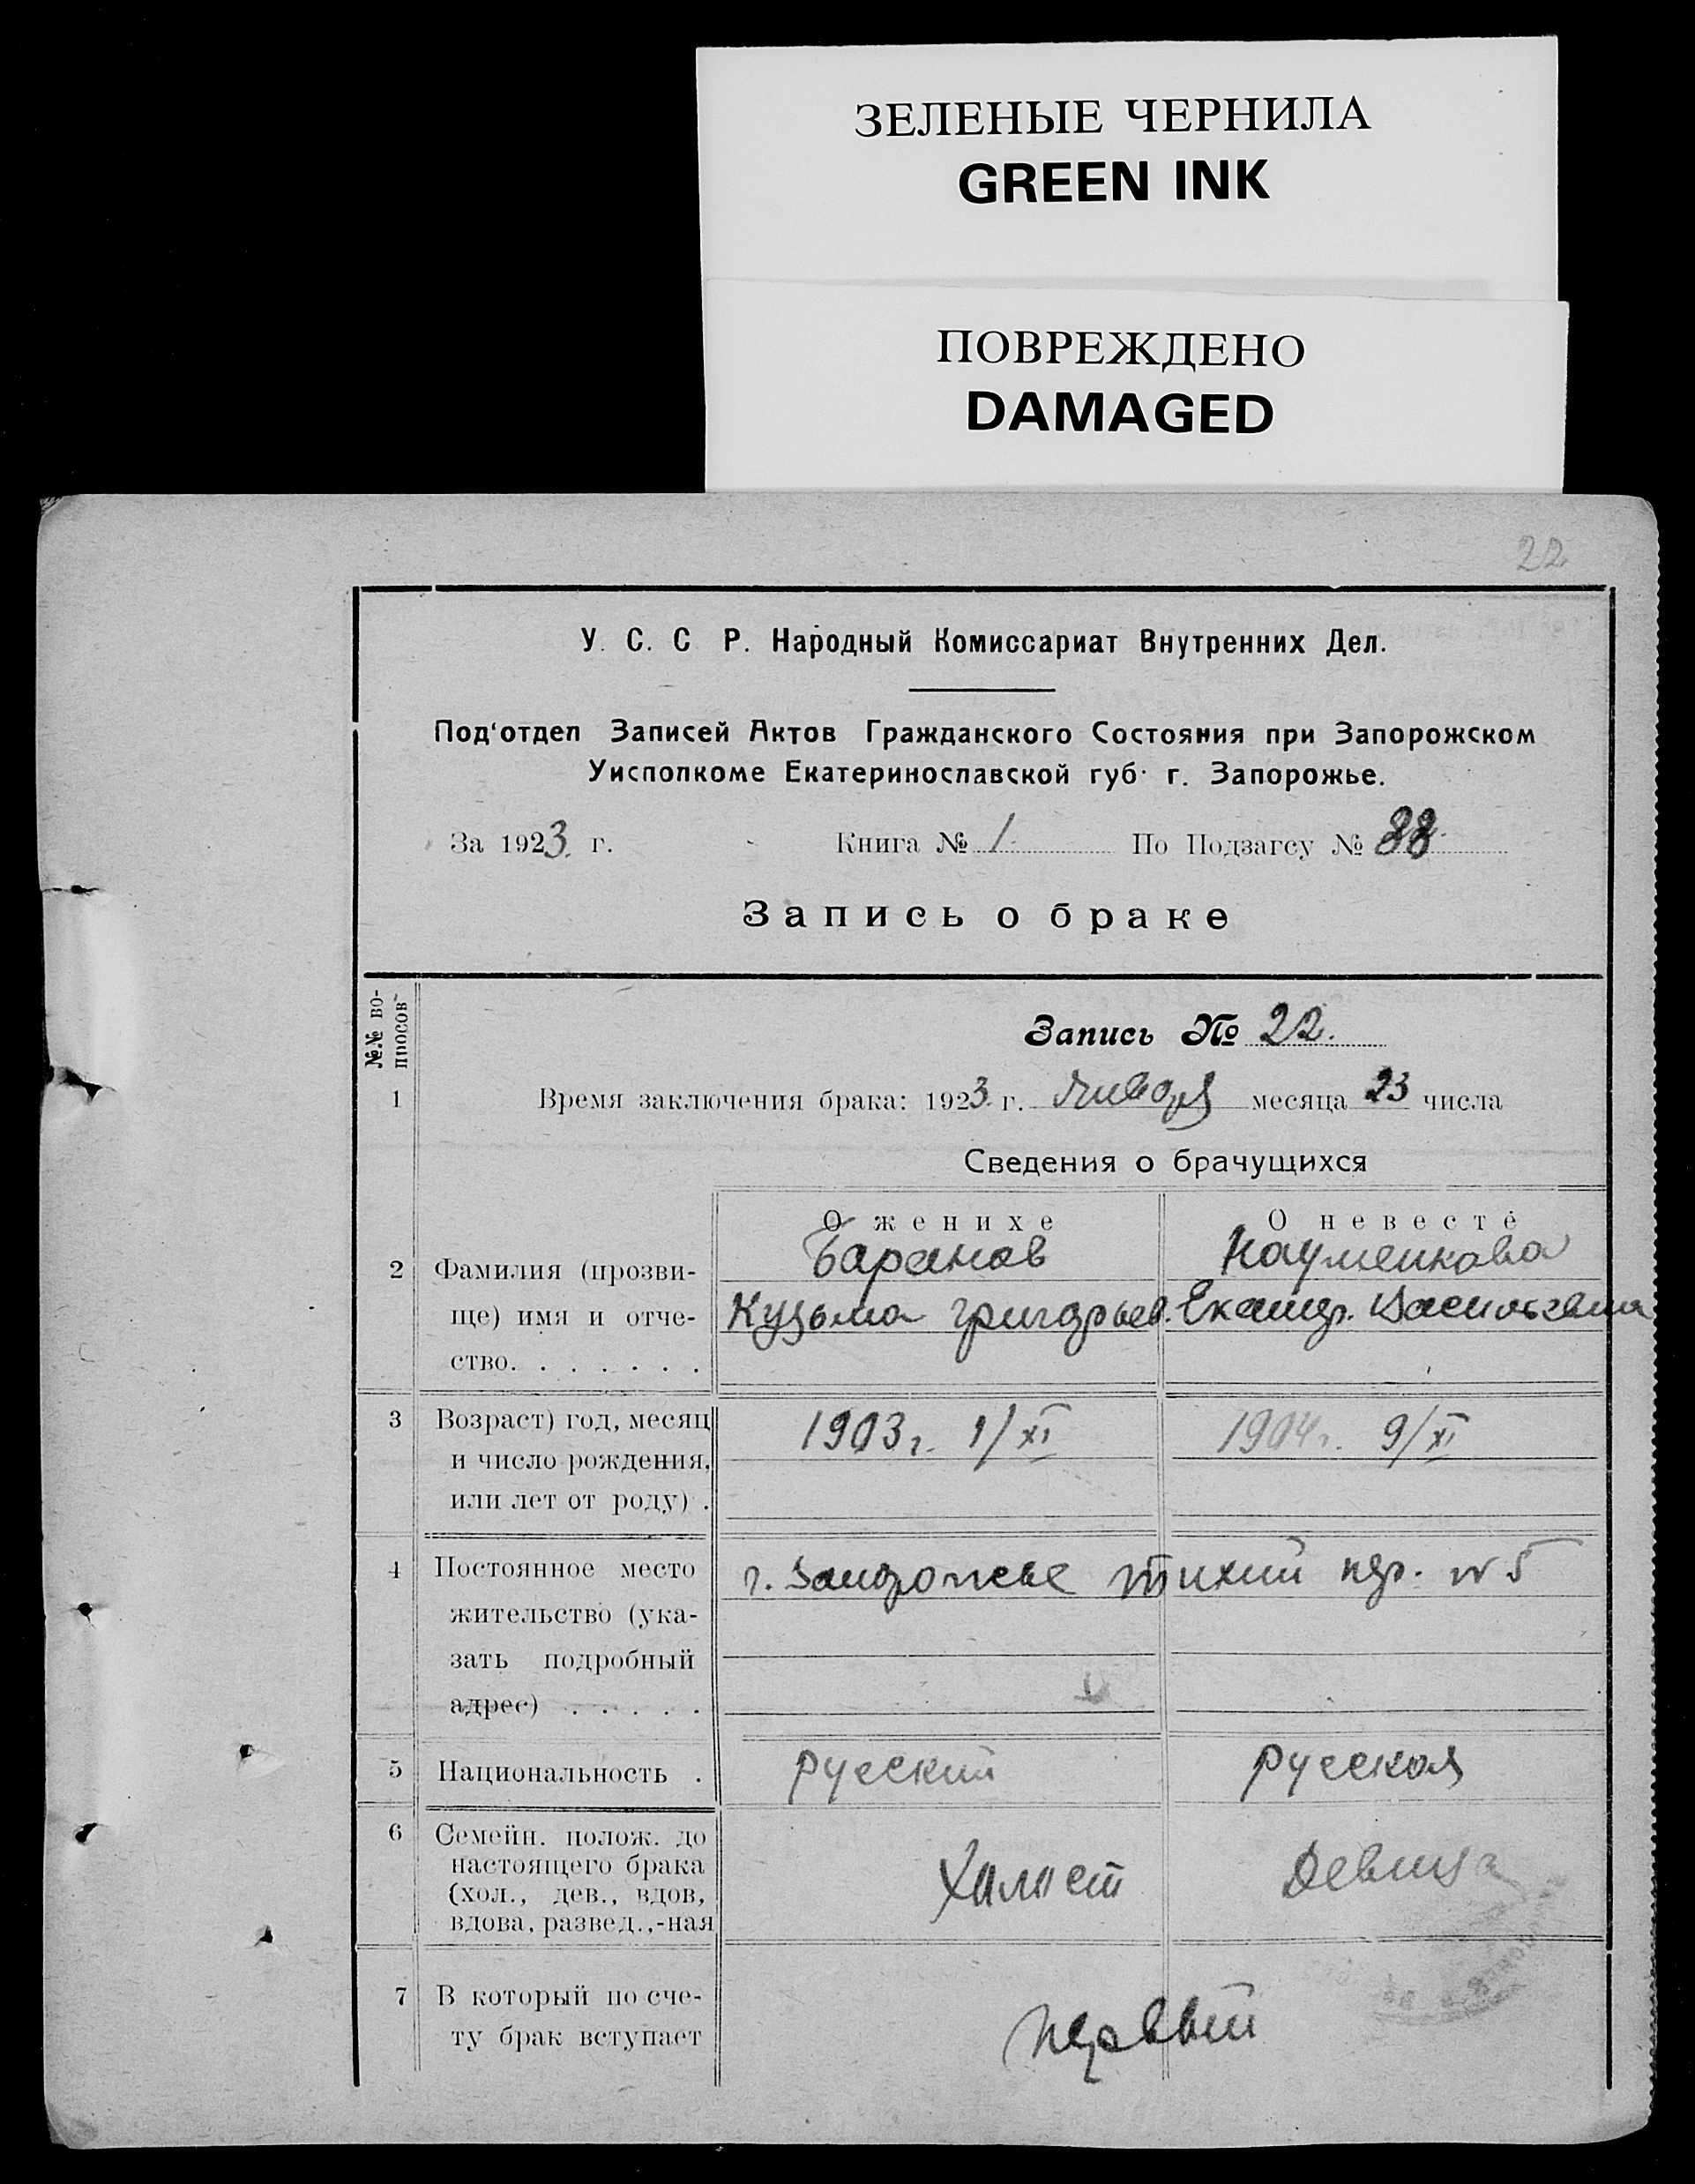 ЗЕЛЕНЫЕ ЧЕРНИЛА
GREEN INK
ПОВРЕЖДЕНО
DAMAGED
22
У. С. С Р. Народный Комиссариат Внутренних Дел.
Под'отдел Записей Актов Гражданского Состояния при Запорожском
Уисполкоме Екатеринославской губ. г. Запорожье.
За 1923. г. Книга № 1 По Подзагсу №
Запись о браке
№.№ во-
просов
Запись № 22.
1 Время заключения брака: 1923 г. января месяца 23 числа
Сведения о брачущихся
О женихе О невесте
2 Фамилия (прозви- Баранов Науменкова
ще) имя и отче- Кузьма Григорьев. Екатер. Васильевна
ство. . . . . . .
3 Возраст) год, месяц 1903 г. 1/XI 1904 г. 9/XI
и число рождения,
или лет от роду) .
4 Постоянное место г. Запорожье тихий пер. № 5
жительство (ука-
зать подробный
адрес) . . . . .
5 Национальность . русский русская
6 Семейн. полож. до
настоящего брака
(хол., дев., вдов, Холост Девица
вдова, развед.,-ная
7 В который по сче- первый
ту брак вступает